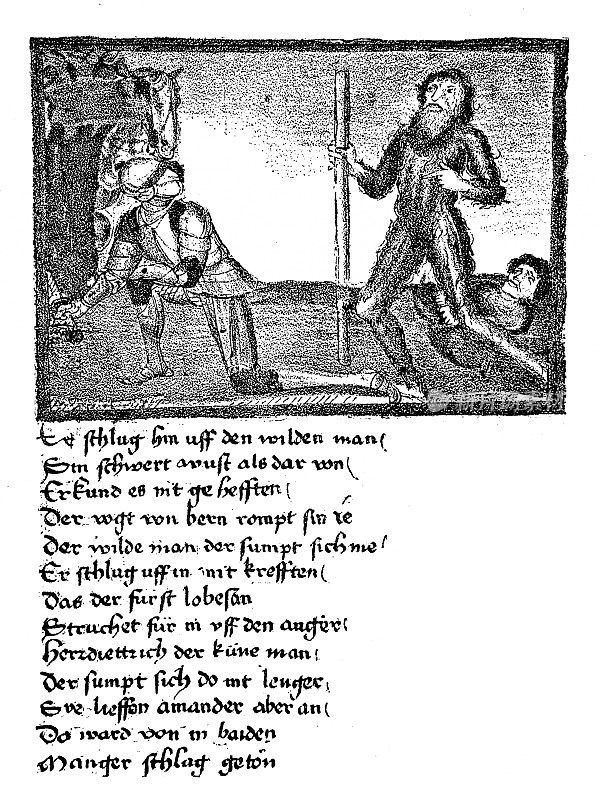 Er schlug hin uff den wilden man
Sin schwert wust als dar von
Er kund es nit ge hefften
Der vogt von bern rompt sin re
Der wilde man der sumpt sich me
Er schlug uff in mit krefften
Das der fürst lobesan
Struchet für in vff den anger
Herr diettrich der küne man
Der sumpt sich do nit lenger
Sye lieffen amander aber an
Do ward von in baiden
Manger schlag geton